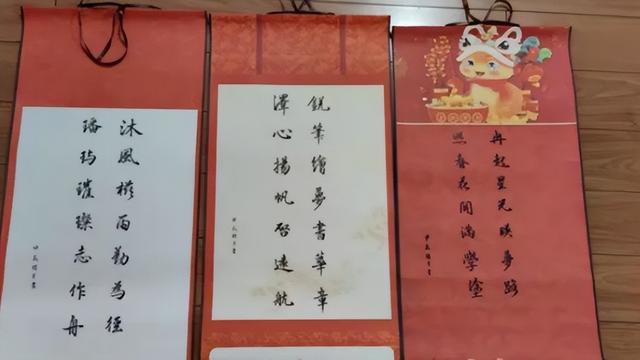 沐風栉雨勤為徑
璠玙璀璨志作舟
銳筆繪夢書華章
澤心揚帆啓遠航
冉起星光映夢路
熙春花開滿學塗